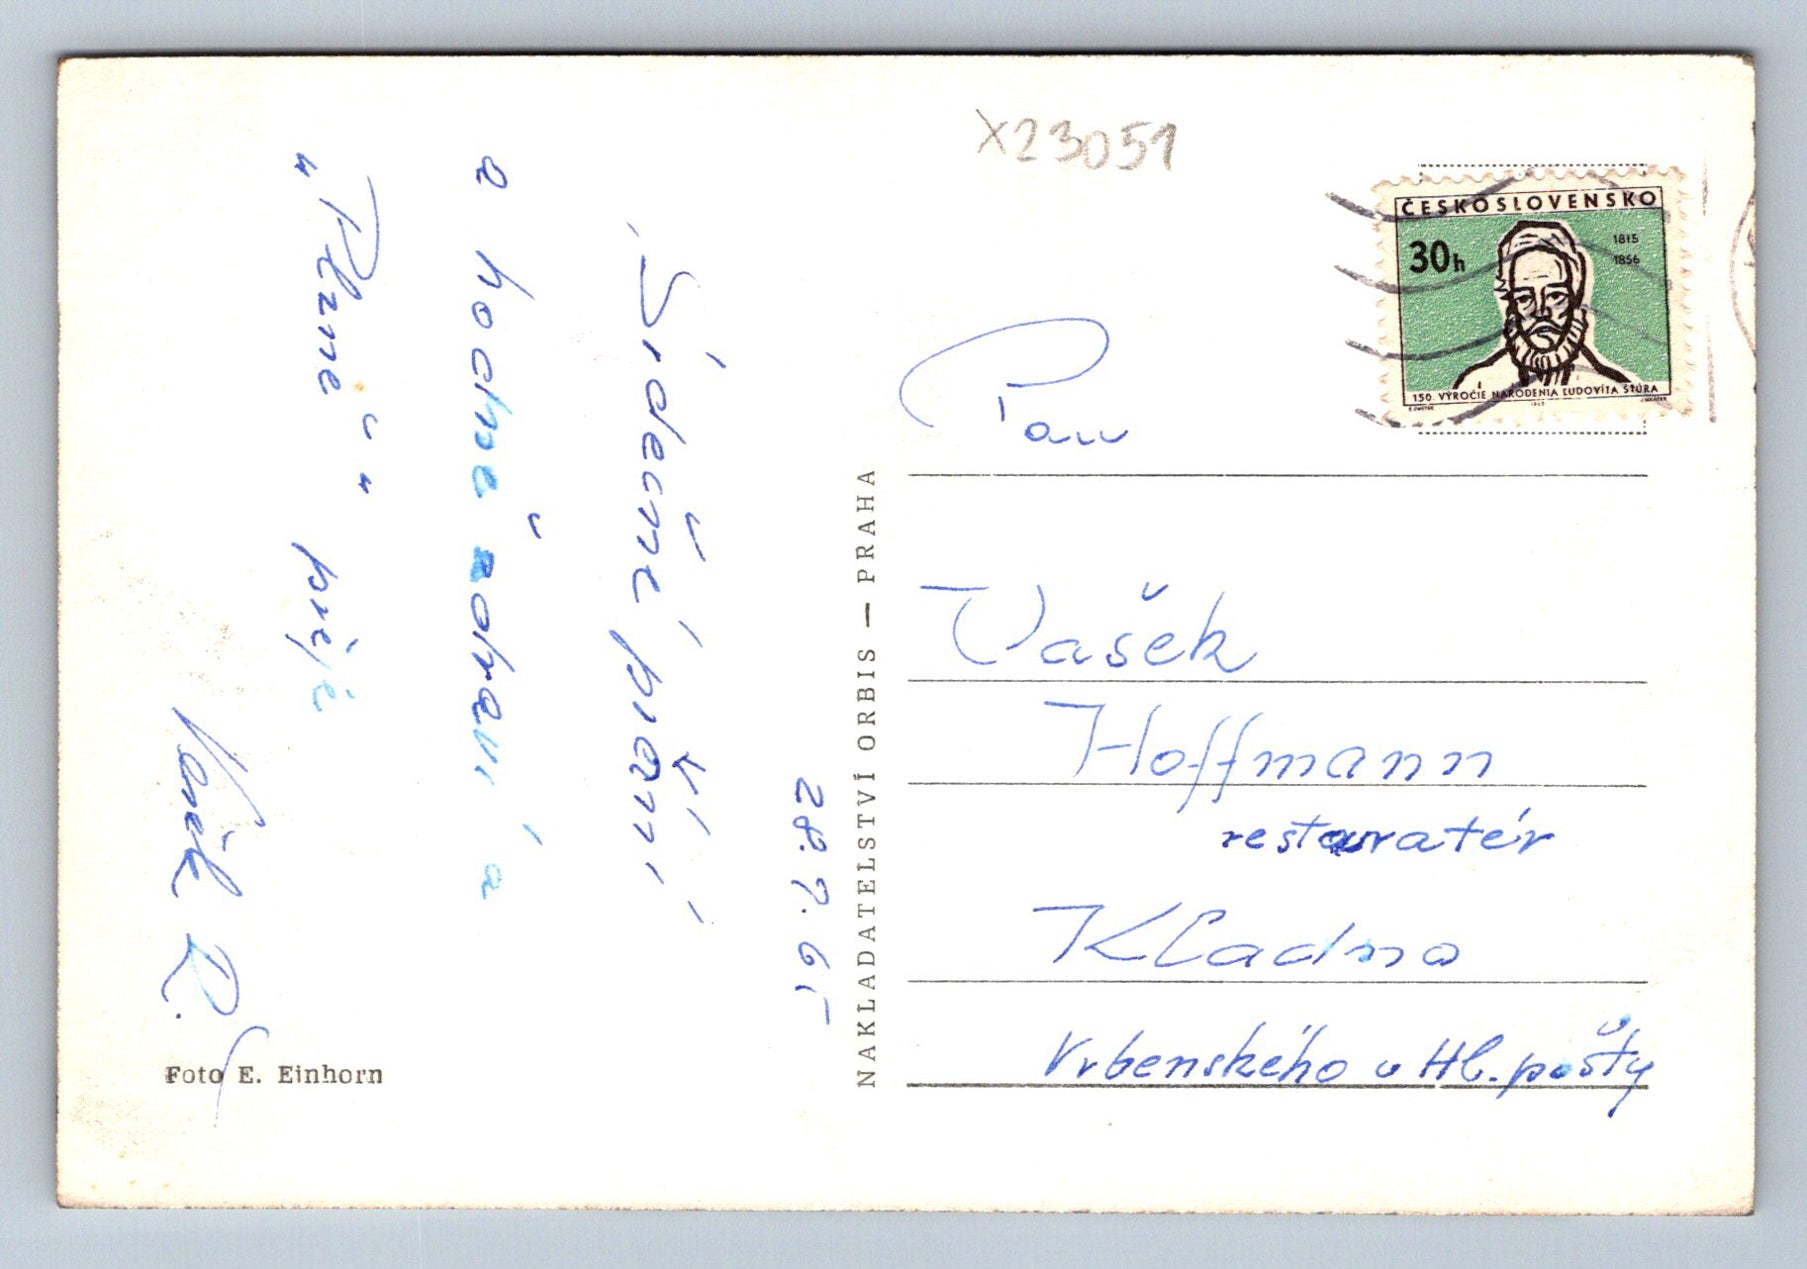 X23051
ČESKOSLOVENSKO
30h
1815
1856
150. VÝROČIE NARODENIA ĽUDOVÍTA ŠTÚRA
1965
28. 9. 65
Srdečné přání
a hodně zdraví a
"Plzně" přeje
Vašek R.
Foto E. Einhorn
NAKLADATELSTVÍ ORBIS — PRAHA
Pan
Vašek
Hoffmann
restauratér
Kladno
Vrbenského u Hl. pošty